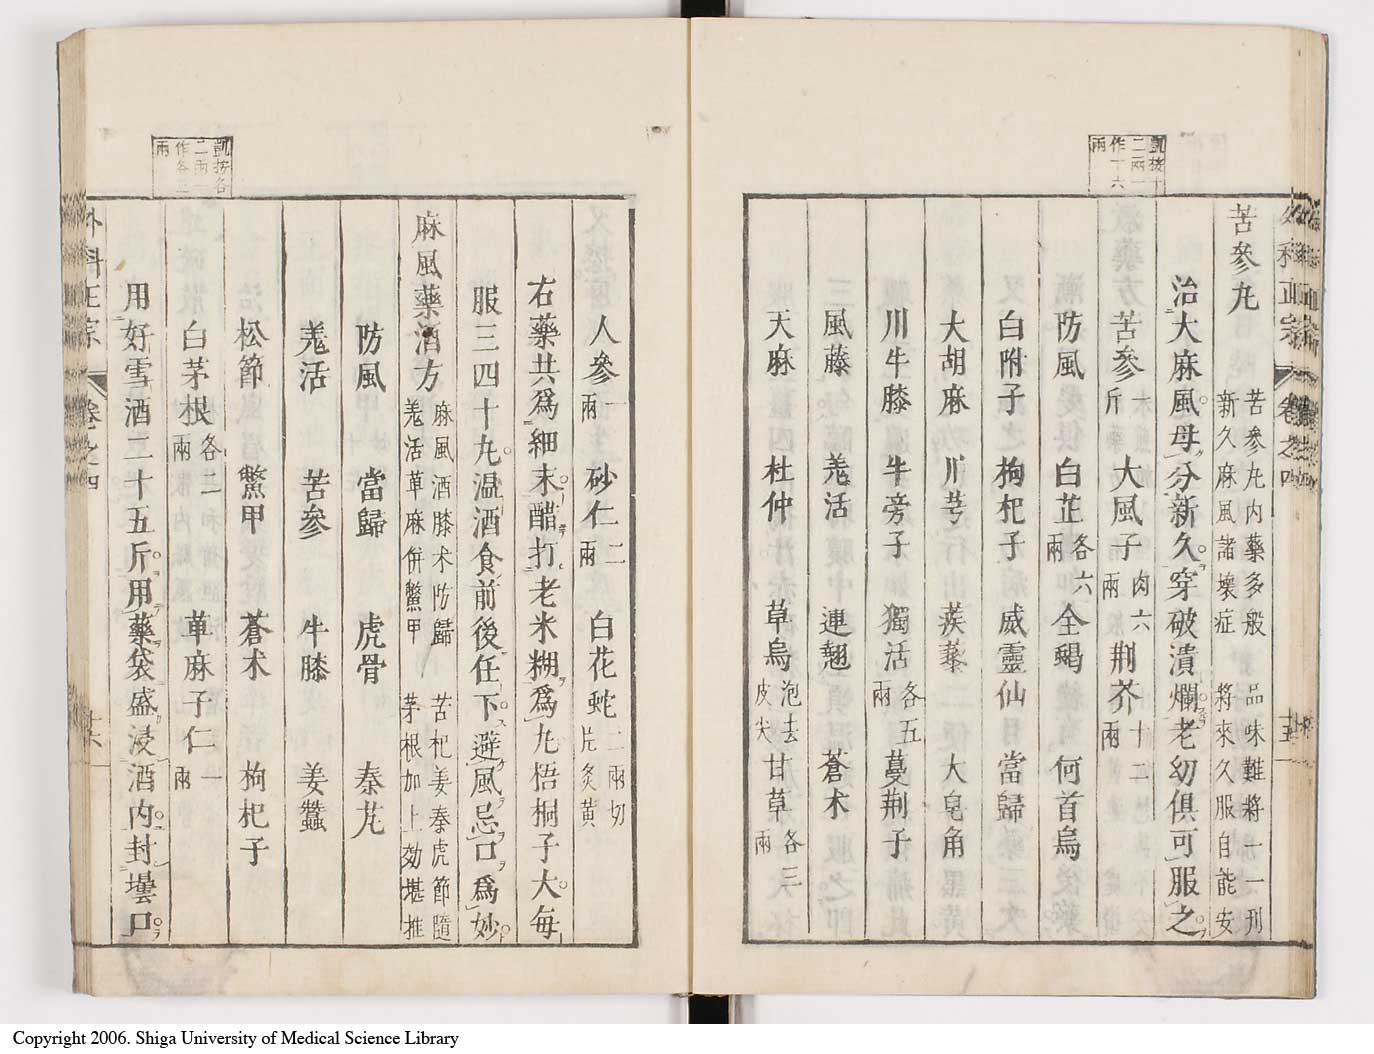 凱按十
二兩一
作十六
兩
苦參丸
苦參丸內藥多般
品味難將一一刊
新久麻風諸壞症
將來久服自能安
治大麻風毋分新久穿破潰爛老幼俱可服之
苦參一斤 大風子肉六兩 荊芥十二兩
防風 白芷各六兩 全蝎 何首烏
白附子 枸杞子 威靈仙 當歸
大胡麻 川芎 蒺藜 大皂角
川牛膝 牛旁子 獨活各五兩 蔓荊子
風藤 羌活 連翹 蒼朮
天麻 杜仲 草烏泡去皮尖 甘草各三兩
外科正宗 卷之四
凱按各
二兩一
作各三
兩
人參一兩 砂仁二兩 白花蛇二兩切片炙黃
右藥共為細末醋打老米糊為丸梧桐子大每
服三四十丸温酒食前後任下避風忌口為妙
麻風藥酒方
麻風酒膝朮防歸
苦杞姜秦虎節隨
羌活草麻併鱉甲
茅根加上効堪推
防風 當歸 虎骨 秦艽
羌活 苦參 牛膝 姜蠶
松節 鱉甲 蒼朮 枸杞子
白茅根各二兩 草麻子仁一兩
用好雪酒二十五斤用藥袋盛浸酒內封壜口
外科正宗 卷之四 十六